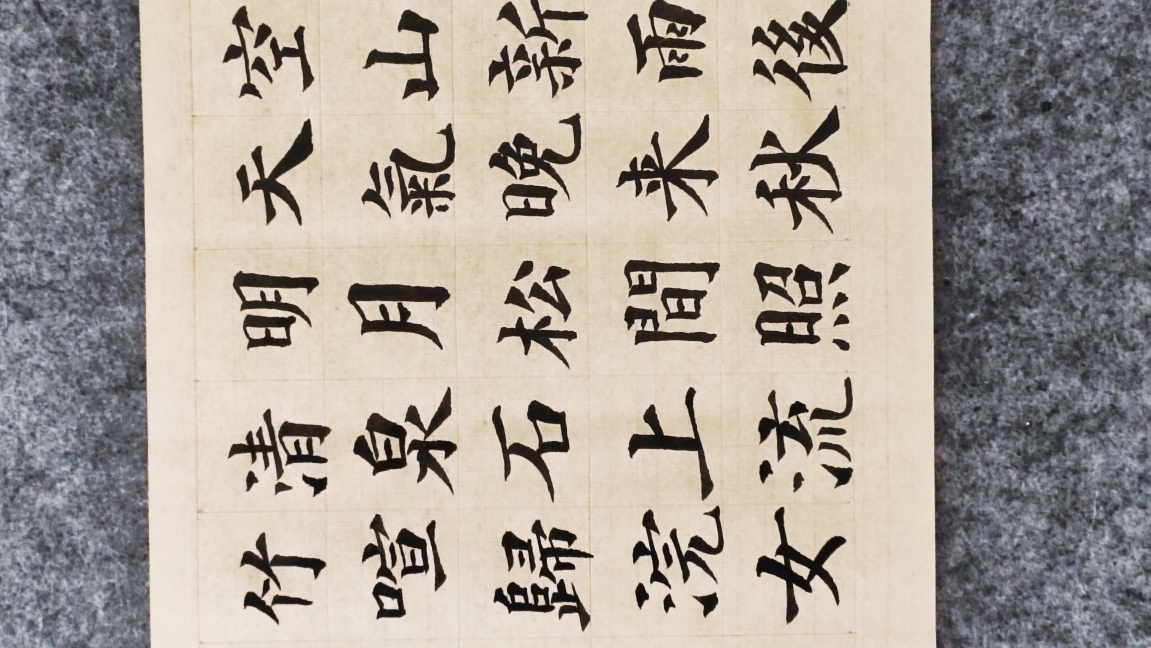 空山新雨後
天氣晚来秋
明月松間照
清泉石上流
竹喧歸浣女